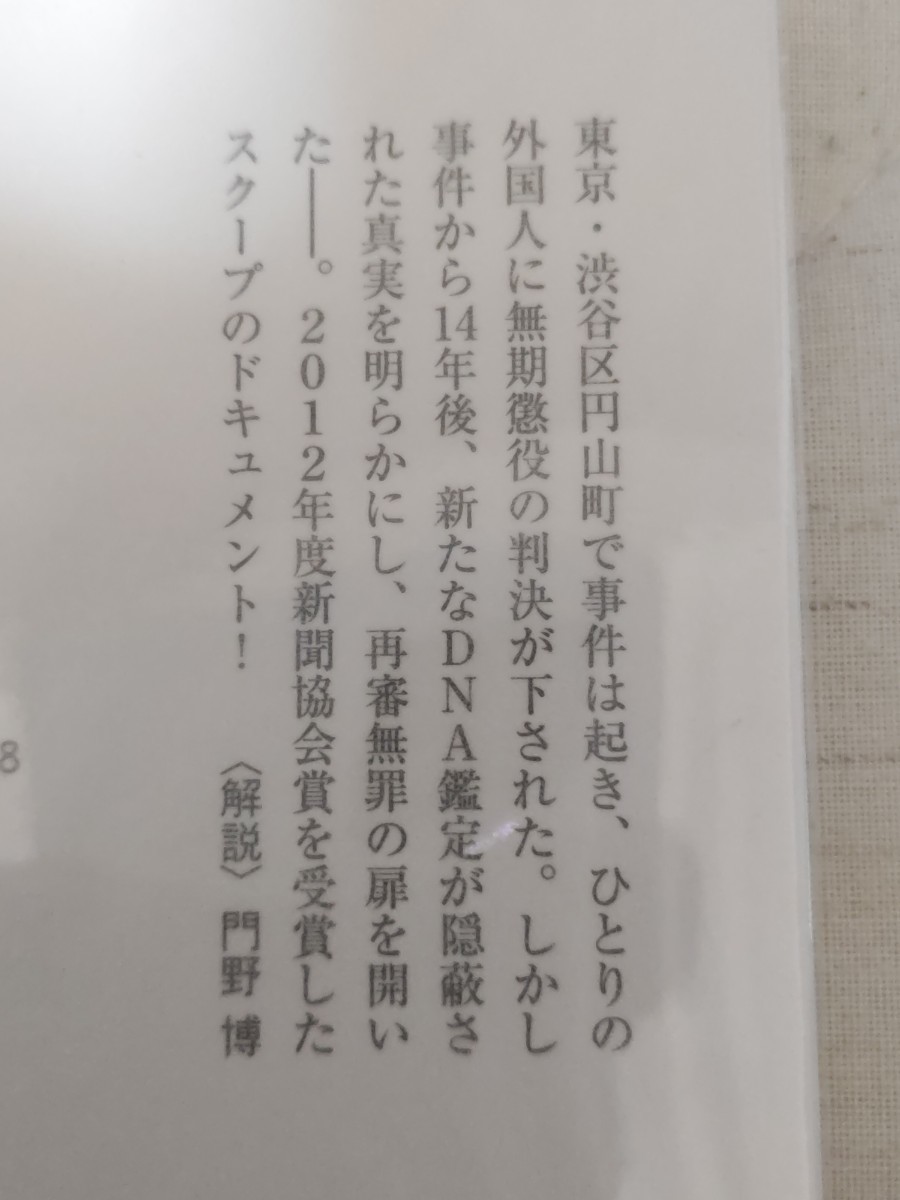 東京・渋谷区円山町で事件は起き、ひとりの
外国人に無期懲役の判決が下された。しかし
事件から14年後、新たなDNA鑑定が隠蔽さ
れた真実を明らかにし、再審無罪の扉を開い
た――。2012年度新聞協会賞を受賞した
スクープのドキュメント! 〈解説〉門野 博
8